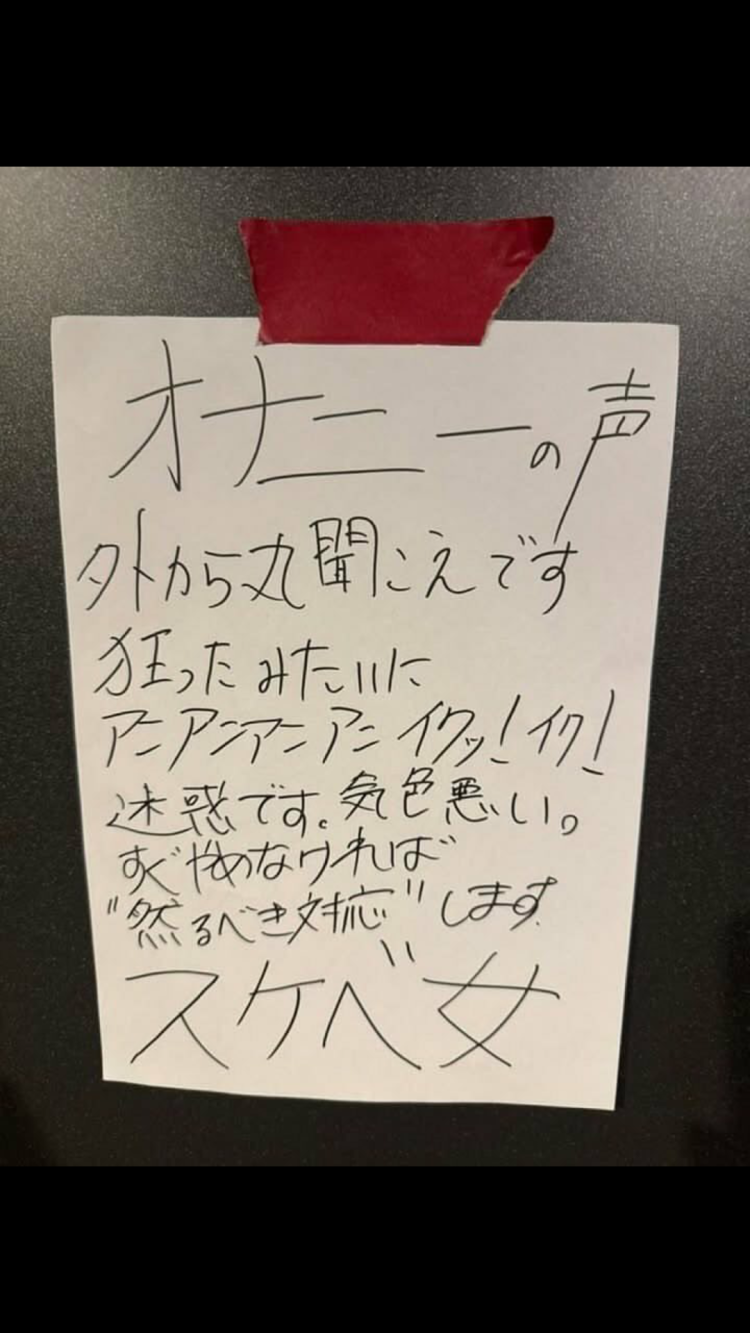 オナニーの声
外から丸聞こえです
狂ったみたいに
アンアンアンアンイクッ!イク!
迷惑です。気色悪い。
すぐやめなければ
"然るべき対応"します
スケベ女